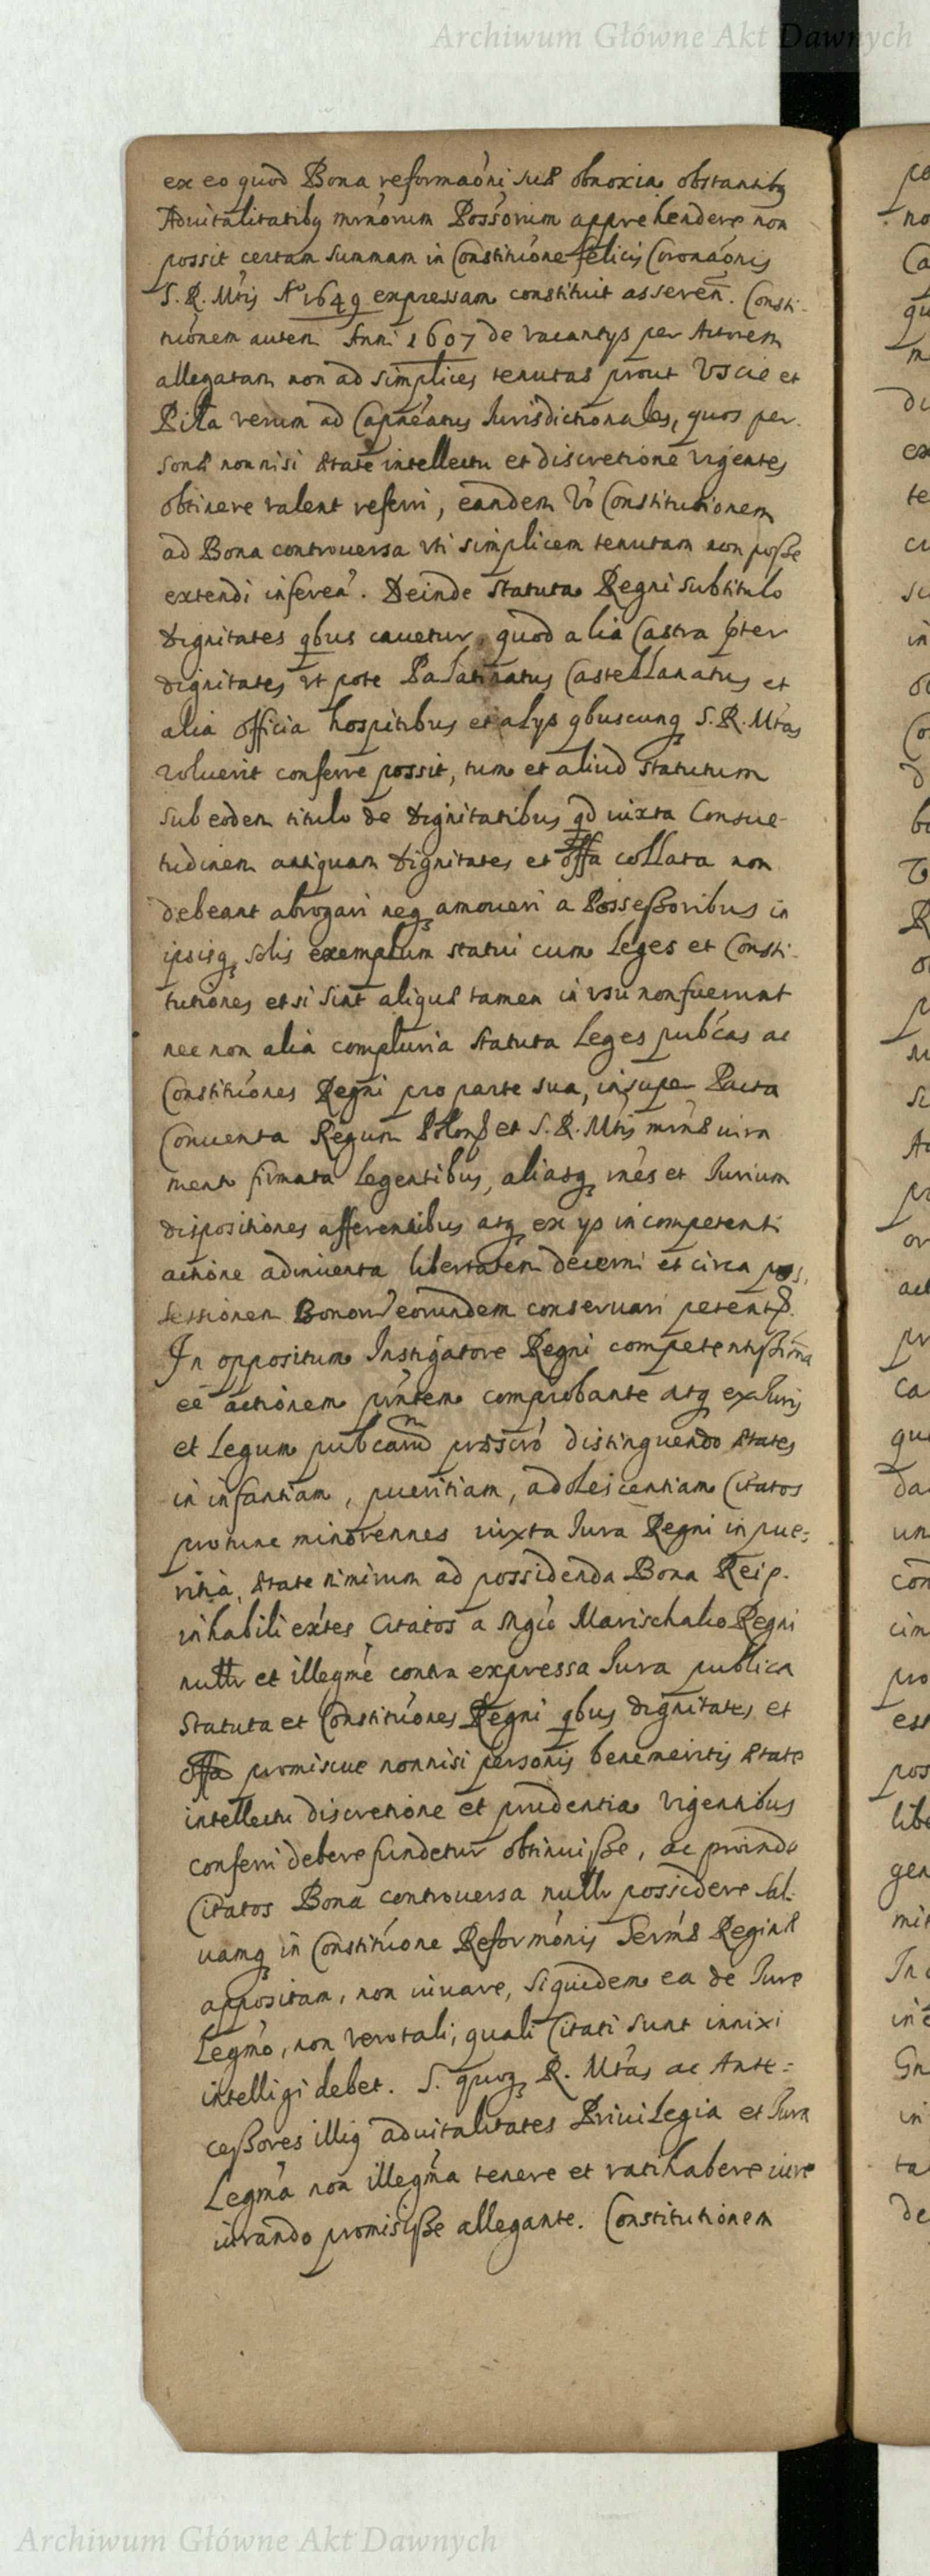 Archiwum Główne Akt Dawnych
ex eo quod Bona reformaōni suæ obnoxia obstantibꝫ
Aduitalitatibꝫ mrnorum Possorum apprehendere non
possit certam summam in Constitutione felicis Coronaōnis
S. R. Mtis A° 1649 expressam constituit asseren. Consti-
tuōnem autem Anni 1607 de vacantys per Actorem
allegatam non ad simplices tenutas prout Uscie et
Piła verum ad Capneatus Jurisdictionales, quos per
sonæ nonnisi ætate intellectu et discretione vigentes
obtinere valent referri, eandem vo Constitutionem
ad Bona controuersa vti simplicem tenutam non posse
extendi inferen. Deinde statuta Regni sub titulo
Dignitates qbus cauetur quod alia Castra pter
dignitates vt pote Palatinatus Castellanatus et
alia officia hospitibus et alys qbuscunqꝫ S. R. Mtas
voluerit conferre possit, tum et aliud statutum
sub eodem titulo de Dignitatibus qd iuxta Consue-
tudinem antiquam Dignitates et offa collata non
debeant abrogari neqꝫ amoueri a Possessoribus in
ipsisqꝫ solis exemplum statui cum Leges et Consti-
tutiones etsi sint aliquæ tamen in vsu non fuerunt
nec non alia compluria statuta Leges pubcas ac
Constituōnes Regni pro parte sua, insuper Pacta
Conuenta Regum Polonæ et S. R. Mtis mrnæ iura
ment firmata legentibus, aliasqꝫ rnes et Jurium
dispositiones afferentibus atqꝫ ex ys incompetenti
actione adinuenta libertatem decerni et circa pos,
sessionem Bonor eorundem conseruari petent.
In oppositum Instigatore Regni competentissima
eē actionem pntem comprobante atqꝫ ex Juris
et Legum pubcarum præscro distinguendo ætates
in infantiam, pueritiam, adolescentiam Citatos
pro tunc minorennes iuxta Jura Regni in pue-
ritia, ætate nimirum ad possidenda Bona Reip.
inhabili extes Citatos a Mgco Marischalco Regni
nullr et illegme contra expressa Jura publica
Statuta et Constituōnes Regni qbus dignitates et
offa promiscue nonnisi personis benemeritis ætate
intellectu discretione et prudentia vigentibus
conferri debere sundetur obtinuisse, ac proinde
Citatos Bona controuersa nullr possidere Sal-
uamqꝫ in Constituōne Reformōnis Sermæ Reginæ
appositam, non iuuare, siquidem ea de Jure
Legmo, non vero tali, quali Citati sunt innixi
intelligi debet. S. quoqꝫ R. Mtas ac Ante-
cessores illiq aduitalitates Priuilegia et Jura
Legma non illegma tenere et ratihabere iure
iurando promisisse allegante. Constitutionem
Archiwum Główne Akt Dawnych